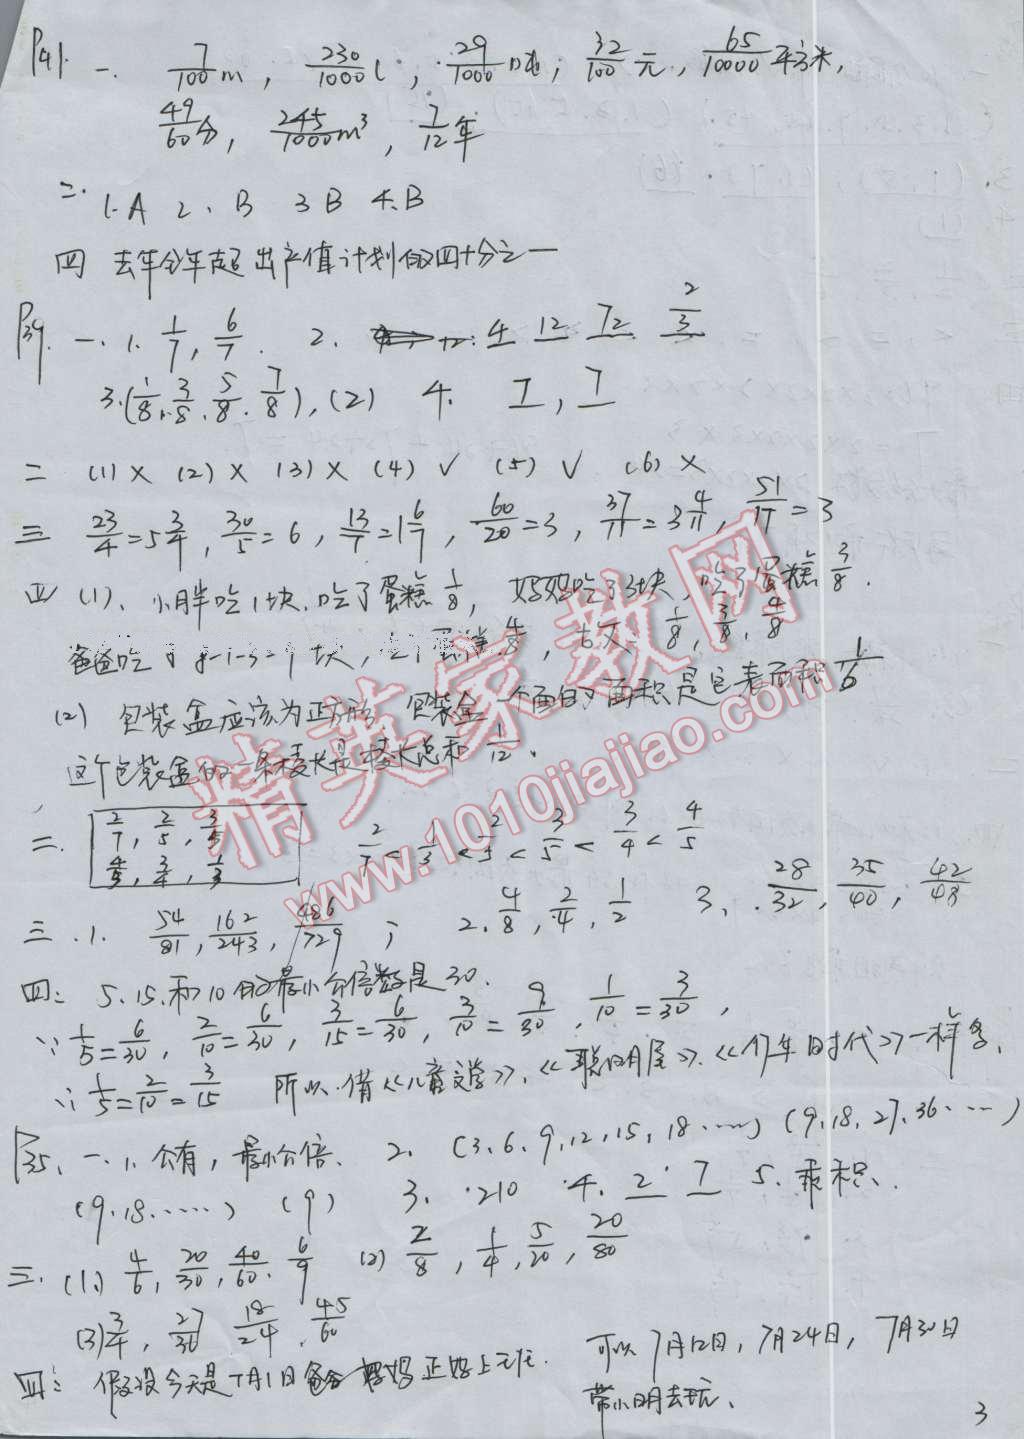 P41. 一. 7/100 m, 230/1000 L, 29/1000 吨, 32/100 元, 65/10000 平方米,
49/60 分, 245/1000 m³, 7/12 年
二. 1. A 2. B 3 B 4. B
四 去年全年超出产值计划的四十分之一
P39. 一. 1. 1/7, 6/7. 2. 4 12 72 2/3
3. (1/8, 3/8, 5/8, 7/8), (2) 4. 7, 7
二 (1) × (2) × (3) × (4) √ (5) √ (6) ×
三 23/4=5 3/4, 30/5=6, 13/7=1 6/7, 60/20=3, 37/11=3 4/11, 51/17=3
四 (1)、小胖吃1块,吃了蛋糕 1/8, 妈妈吃了3块,吃了蛋糕 3/8.
爸爸吃了 8-1-3=4块, 吃了蛋糕 4/8, 1/8, 3/8, 4/8
(2) 包装盒应该为正方形 包装盒一个面的面积是它表面积 1/6
这个包装盒的一条棱长是棱长总和 1/12.
二. 2/7, 2/5, 3/5 2/7 < 1/3 < 2/5 < 3/5 < 3/4 < 4/5
4/5, 3/4, 1/3
三. 1. 54/81, 162/243, 486/729; 2. 4/8, 2/4, 1/2 3、28/32, 35/40, 42/48
四: 5、15、和10的最小公倍数是30.
∵ 1/5=6/30, 2/10=6/30, 3/15=6/30, 3/10=9/30, 1/10=3/30,
∴ 1/5=2/10=3/15 所以借《儿童文学》、《聪明屋》、《少年时代》一样多.
P35、一. 1. 公有, 最小公倍. 2. (3、6、9、12、15、18……) (9、18、27、36……)
(9、18……) (9) 3. 210 4. 2 7 5. 乘积.
三. (1) 4/6, 20/30, 40/60, 6/9 (2) 2/8, 1/4, 5/20, 20/80
(3) 3/4, 27/36 18/24, 45/60
四: 假设今天是7月1日爸爸妈妈正好上完班. 可以7月12日, 7月24日, 7月30日
带小明去玩.
3
精英家教网
www.1010jiajiao.com